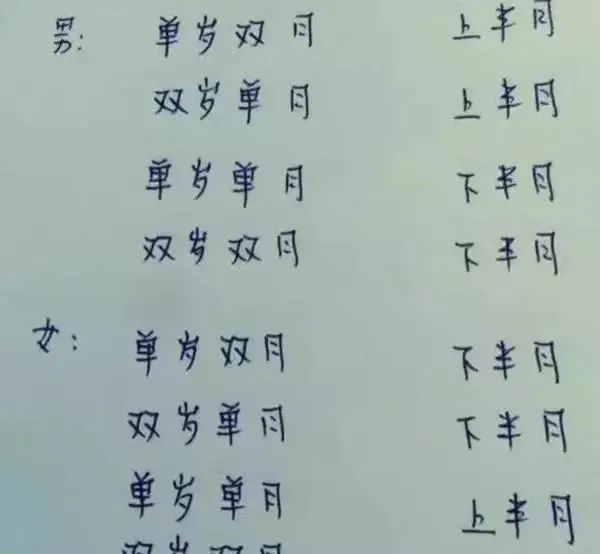 男: 单岁双月 上半月
双岁单月 上半月
单岁单月 下半月
双岁双月 下半月
女: 单岁双月 下半月
双岁单月 下半月
单岁单月 上半月
双岁双月